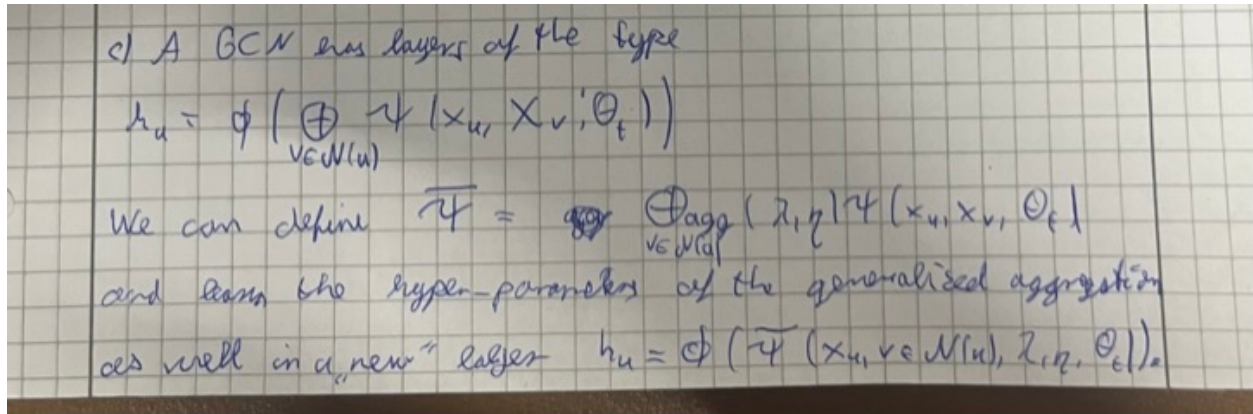 c) A GCN has layers of the type
h_u = φ ( ⊕ ψ (x_u, x_v; Θ_t))
v∈N(u)
We can define ψ̅ = ⊕agg (λ, η) ψ (x_u, x_v, Θ_t)
v∈N(u)
and learn the hyper-parameters of the generalized aggregation
as well in a „new" layer h_u = φ (ψ̅ (x_u, v∈N(u), λ, η, Θ_t)).